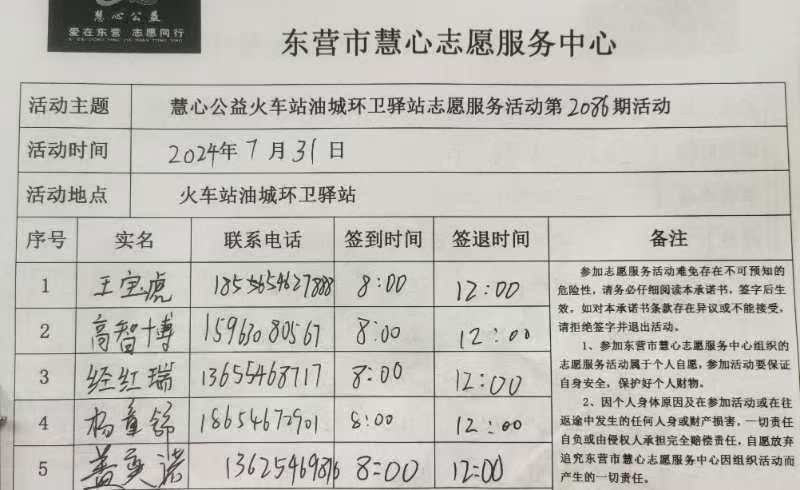 慧心公益
爱在东营 志愿同行
东营市慧心志愿服务中心
活动主题 慧心公益火车站油城环卫驿站志愿服务活动第2086期活动
活动时间 2024年7月31日
活动地点 火车站油城环卫驿站
序号 实名 联系电话 签到时间 签退时间 备注
1 王宝虎 8:00 12:00
2 高智博 15963080567 8:00 12:00
3 经红瑞 13655468717 8:00 12:00
4 杨童舒 18654672901 8:00 12:00
5 盖奕诺 8:00 12:00
参加志愿服务活动难免存在不可预知的
危险性，请务必仔细阅读本承诺书，签字后生
效，如对本承诺书条款存在异议或不能接受，
请拒绝签字并退出活动。
1、参加东营市慧心志愿服务中心组织的
志愿服务活动属于个人自愿，参加活动要保证
自身安全，保护好个人财物。
2、因个人身体原因及在参加活动或在往
返途中发生的任何人身或财产损害，一切责任
自负或由侵权人承担完全赔偿责任，自愿放弃
追究东营市慧心志愿服务中心因组织活动而
产生的一切责任。